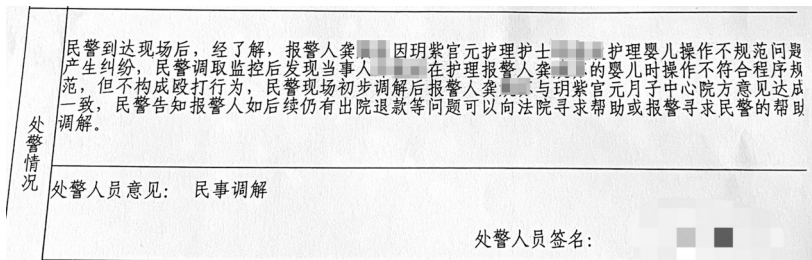 民警到达现场后，经了解，报警人龚 因玥紫官元护理护士 护理婴儿操作不规范问题
产生纠纷，民警调取监控后发现当事人 在护理报警人龚 的婴儿时操作不符合程序规
范，但不构成殴打行为，民警现场初步调解后报警人龚 与玥紫官元月子中心院方意见达成
一致，民警告知报警人如后续仍有出院退款等问题可以向法院寻求帮助或报警寻求民警的帮助
调解。
处警情况
处警人员意见： 民事调解
处警人员签名：